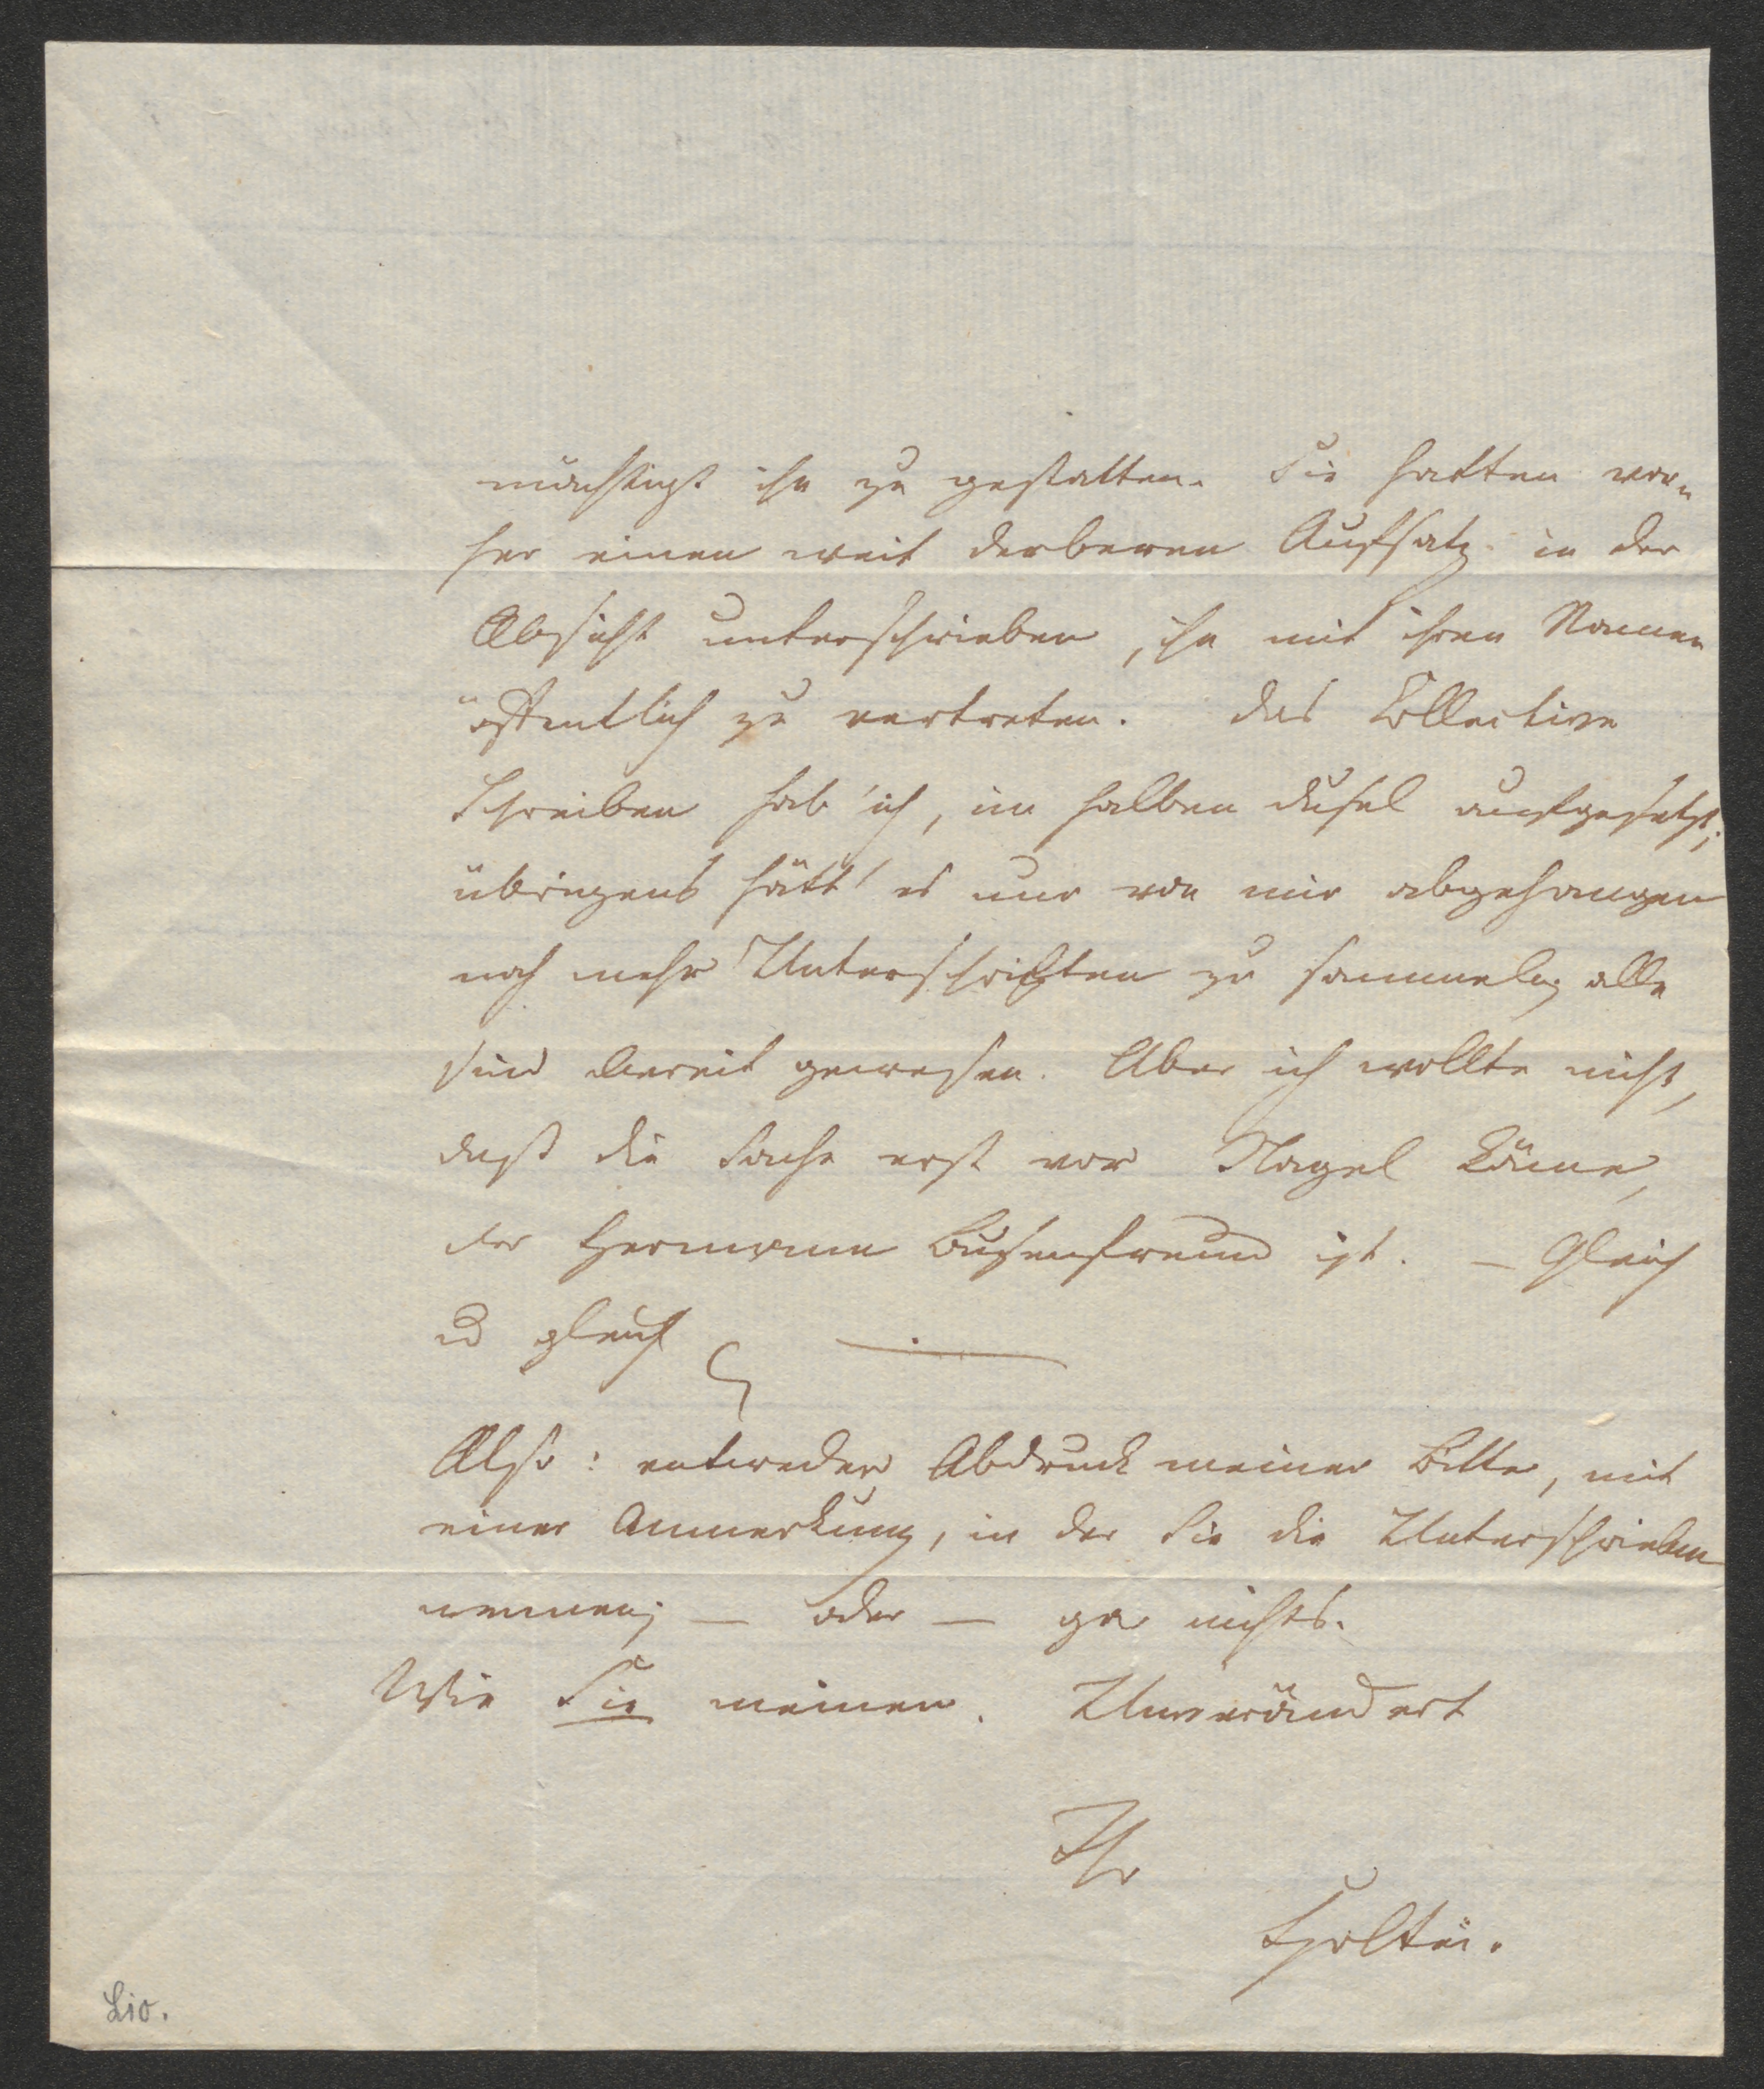 mächtigt ihn zu gestatten. Sie hatten vor-
her einen weit derberen Aufsatz in der
Absicht unterschrieben, ihn mit ihren Namen
öffentlich zu vertreten. Das Collective
Schreiben hab' ich, im halben Dusel aufgesetzt;
übrigens hätt' es nur von mir abgehangen
noch mehr Unterschriften zu sammeln; alle
sind bereit gewesen. Aber ich wollte nicht,
daß die Sache erst vor Nagel käme,
der Hermanns Busenfreund ist. — Gleich
u gleich —
Also: entweder Abdruck meiner Bitte, mit
einer Anmerkung, in der Sie die Unterschrieben
nennen; — oder — gar nichts.
Wie Sie meinen. Unverändert
Ihr
Holtei.
Lio.